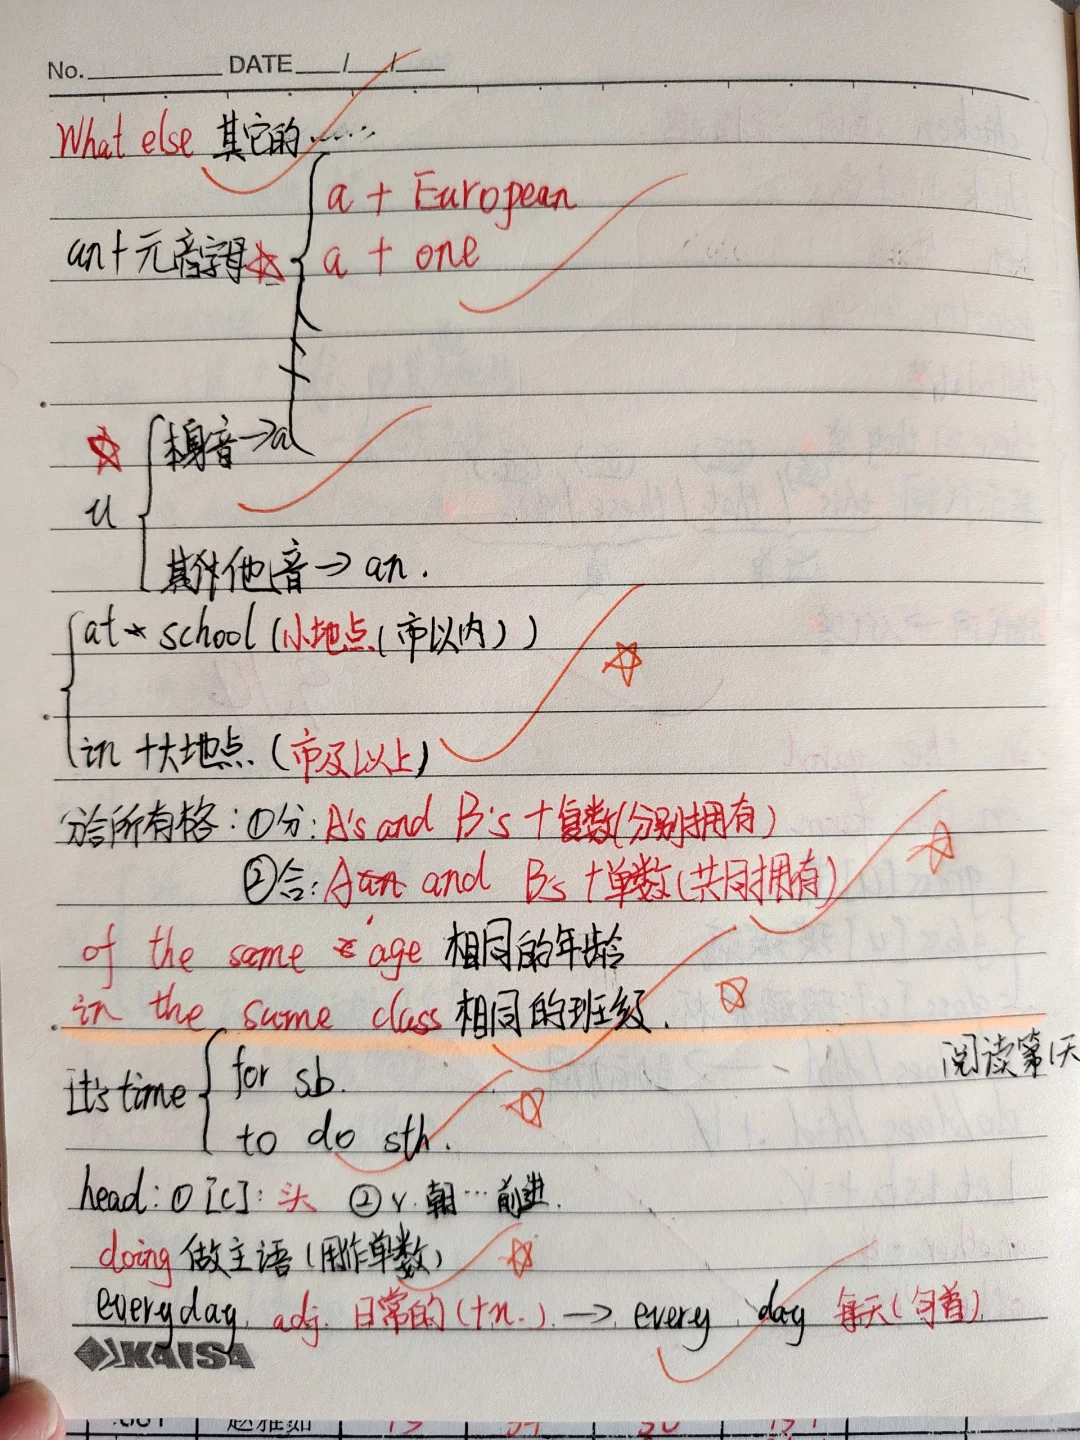 No. DATE / /
What else 其它的……
a + European
an+元音字母 a + one
本身音→a
u
其他音→an.
at school (小地点(市以内))
in +大地点 (市及以上)
分合所有格: ①分: A's and B's +复数(分别拥有)
②合: A and B's +单数(共同拥有)
of the same age 相同的年龄
in the same class 相同的班级.
阅读第1天
for sb.
It's time
to do sth.
head: ①[C]: 头 ②v. 朝…前进.
doing 做主语 (用作单数)
everyday. adj. 日常的 (+n.) → every day 每天(句首).
KAISA